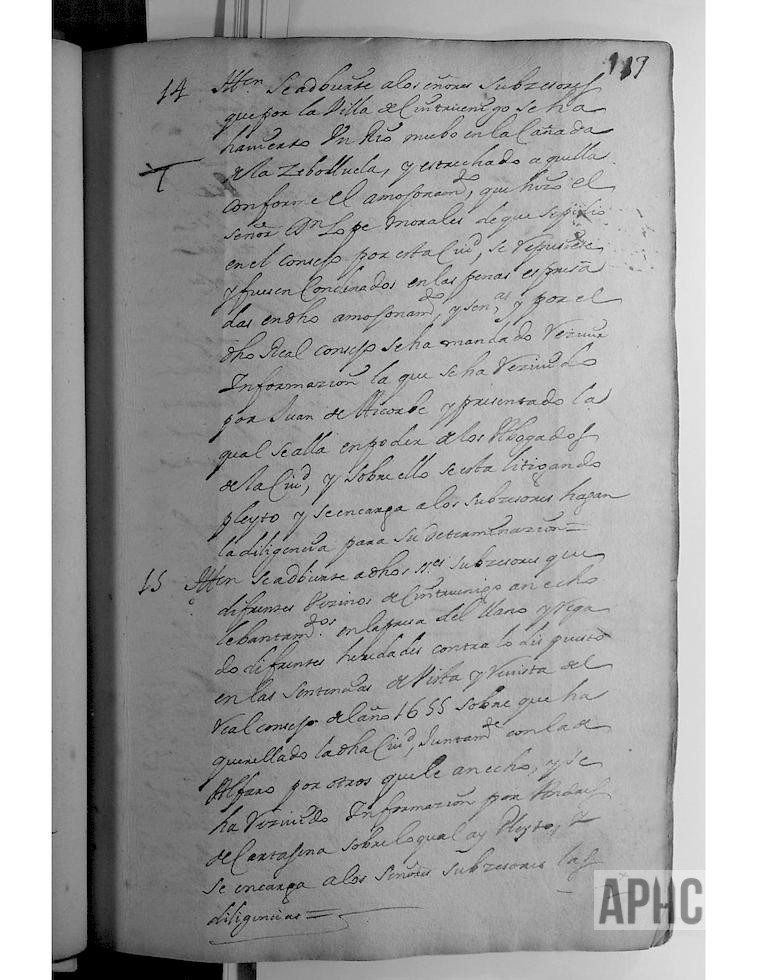 117
14 Itten Se adbierte a los señores Subzesores
que por la Villa de Cintruenigo se ha
havierto Un Rio nuebo en la Cañada
de la Zebolluela, y estrechado aquella
conforme el amojonam.to, que hizo el
señor Dn Lope Morales de que se pidio
en el consejo por esta Ciud, se repusiere
y fuesen Condenados en las penas espresa
das en dho amojonam.to, y sen.as y por el
dho Real consejo se ha mandado Reziuir
Informazion la que se ha Reziuido
por Juan de Vicorbe y presentado la
qual se alla en poder de los Abogados
de la Ciud, y sobre ello se esta litigando
pleyto y se encarga a los subzesores hagan
la diligencia para su determinazion=
15 Itten se adbierte a dhos ss.es subzesores que
difrentes Vezinos de Cintruenigo an echo
lebantam.dos en la presa del llano y Rega
do difrentes heredades contra lo dispuesto
en las Sentencias de Vista y Revista del
Real consejo del año 1655 sobre que ha
querellado la dha Ciud, Juntam.te con la de
Alfaro por otros que le an echo, y se
ha Reziuido Informazion por Andres
de Cartajena sobre lo qual ay Pleyto, y
se encarga a los Señores subzesores las
diligencias=
APHC